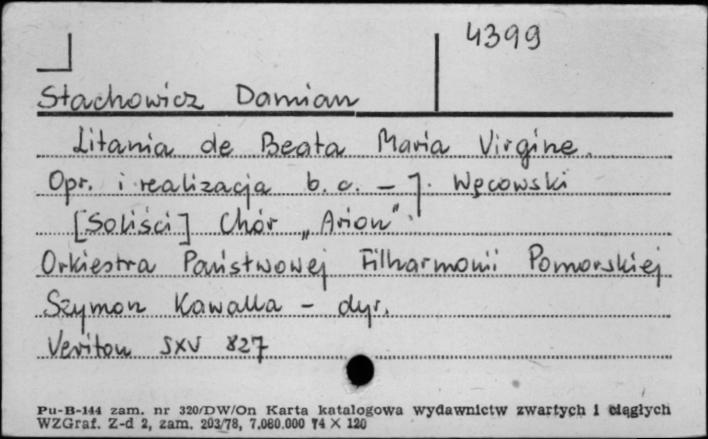 4399
Stachowicz Damian
Litania de Beata Maria Virgine.
Opr. i realizacja b. c. – J. Węcowski
[Soliści] Chór „Arion".
Orkiestra Państwowej Filharmonii Pomorskiej
Szymon Kawalla – dyr.
Veriton SXV 827
Pu-B-144 zam. nr 320/DW/On Karta katalogowa wydawnictw zwartych i ciągłych
WZGraf. Z-d 2, zam. 203/78, 7.080.000 74 X 120